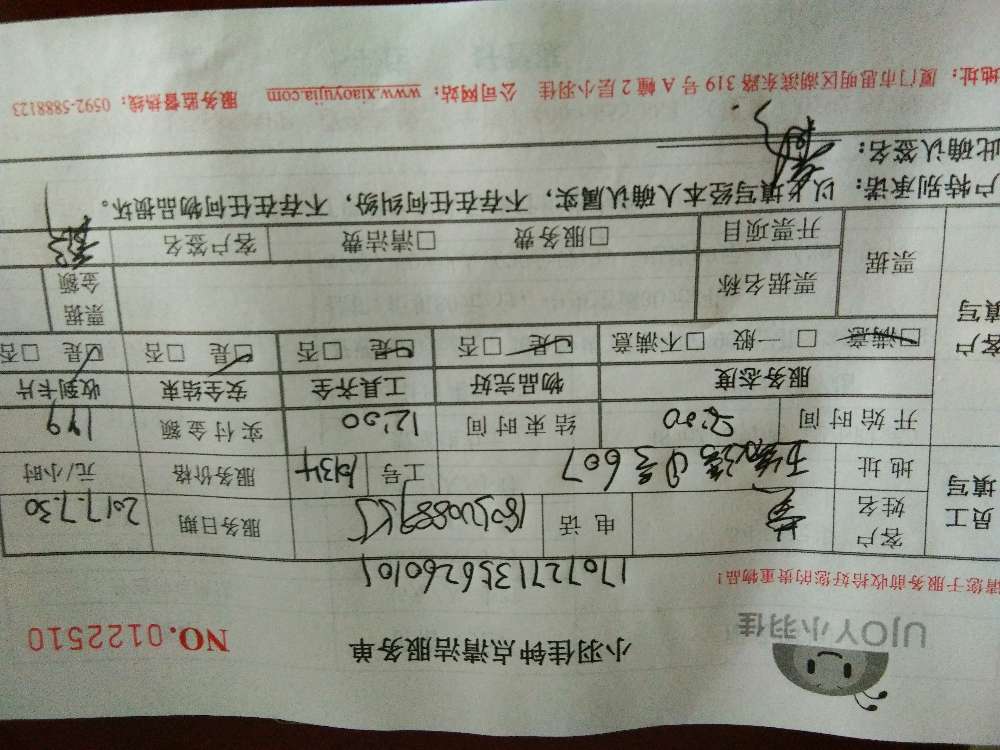 UJOY小羽佳
小羽佳钟点清洁服务单
NO.0122510
请您于服务前收拾好您的贵重物品！
1707271356260101
员工填写
客户姓名 电话 服务日期 2017.7.30
地址 607 工号 服务价格 元/小时
开始时间 结束时间 12:00 实付金额 149
客户填写
服务态度 物品完好 工具齐全 安全结束 收到卡片
□满意 □一般 □不满意 □是 □否 □是 □否 □是 □否 □是 □否
票据 票据名称 票据金额
开票项目 □服务费 □清洁费 客户签名
户特别承诺：以上填写经本人确认属实，不存在任何纠纷，不存在任何物品损坏。
此确认签名：
地址：厦门市思明区湖滨东路319号A幢2层小羽佳 公司网站：www.xiaoyujia.com 服务监督热线：0592-5888123